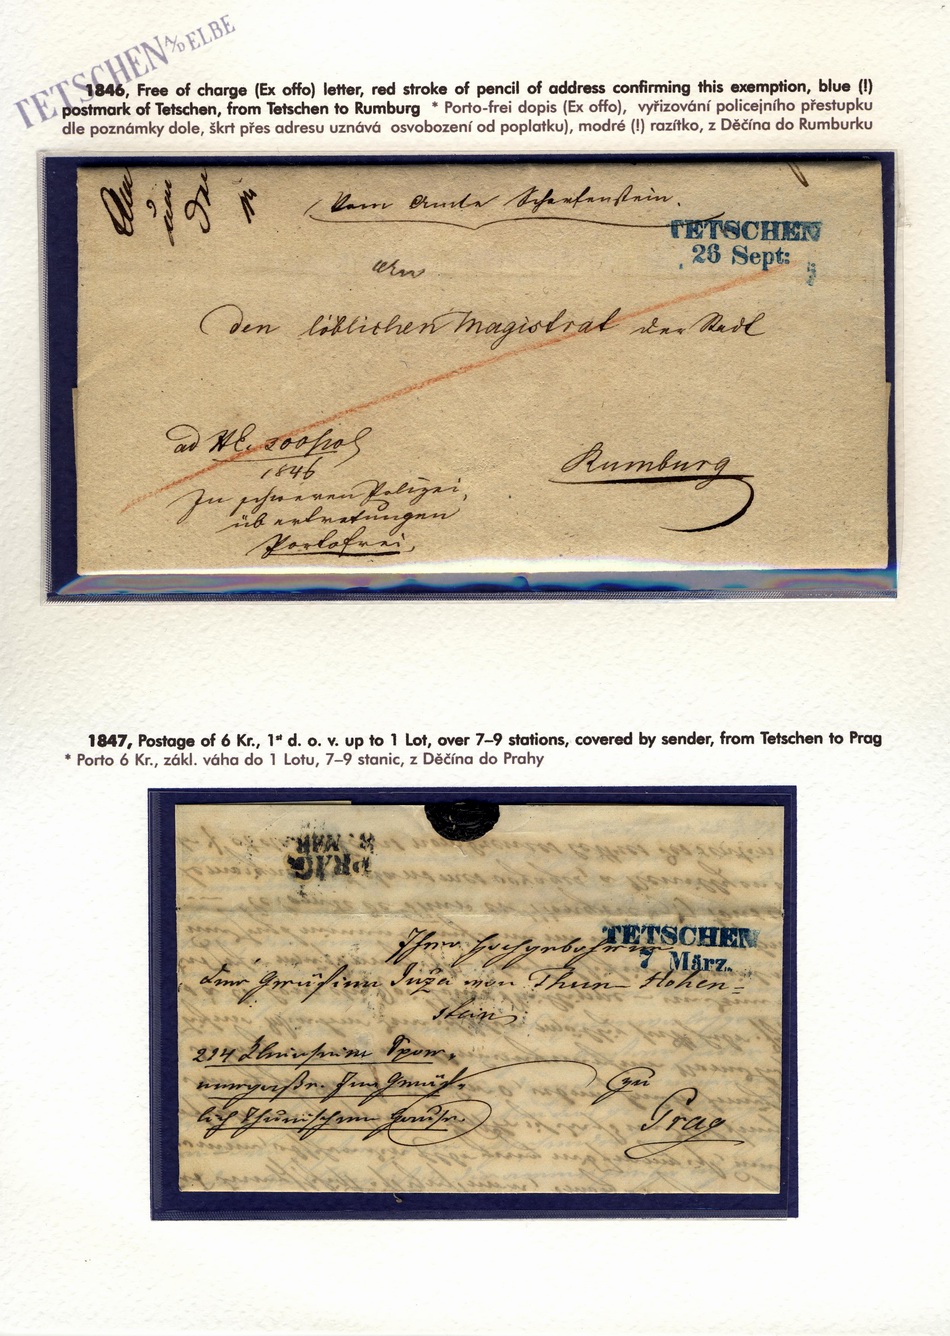 TETSCHEN A/D ELBE
1846, Free of charge (Ex offo) letter, red stroke of pencil of address confirming this exemption, blue (!)
postmark of Tetschen, from Tetschen to Rumburg * Porto-frei dopis (Ex offo), vyřizování policejního přestupku
dle poznámky dole, škrt přes adresu uznává osvobození od poplatku), modré (!) razítko, z Děčína do Rumburku
Vom Amte Scharfenstein.
TETSCHEN
26 Sept:
An
den löblichen Magistrat der Stadt
ad
1846
Rumburg
In schweren Polizei
übertretungen
Portofrei,
1847, Postage of 6 Kr., 1st d. o. v. up to 1 Lot, over 7–9 stations, covered by sender, from Tetschen to Prag
* Porto 6 Kr., zákl. váha do 1 Lotu, 7–9 stanic, z Děčína do Prahy
PRAG
TETSCHEN
7 März.
Ihro Hochgebohren
Gräfinn Juža von Thun-Hohen=
stein
214
Prag